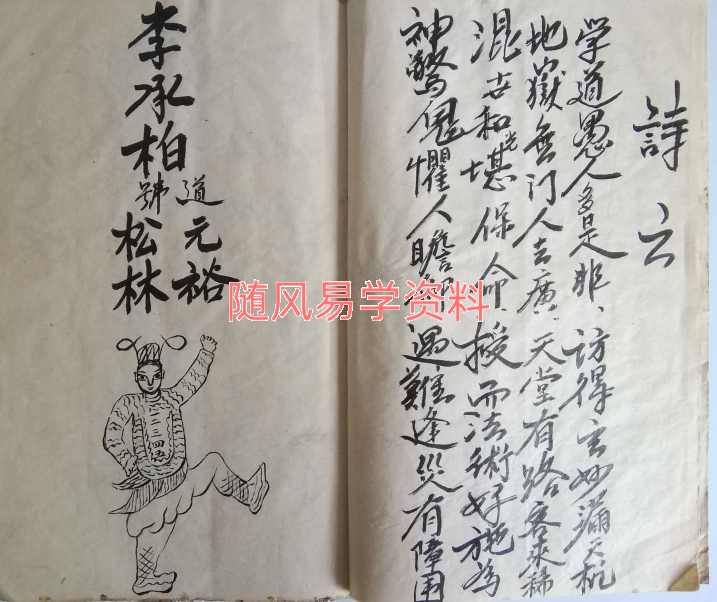 詩云
学道愚人多是非、访得玄妙漏天机
地獄無门人去廣、天堂有路客来稀
混世和光堪保命、授而法術好施為
神驚鬼懼人瞻 遇難逢災有障
李承柏
道元裕
號松林
随风易学资料